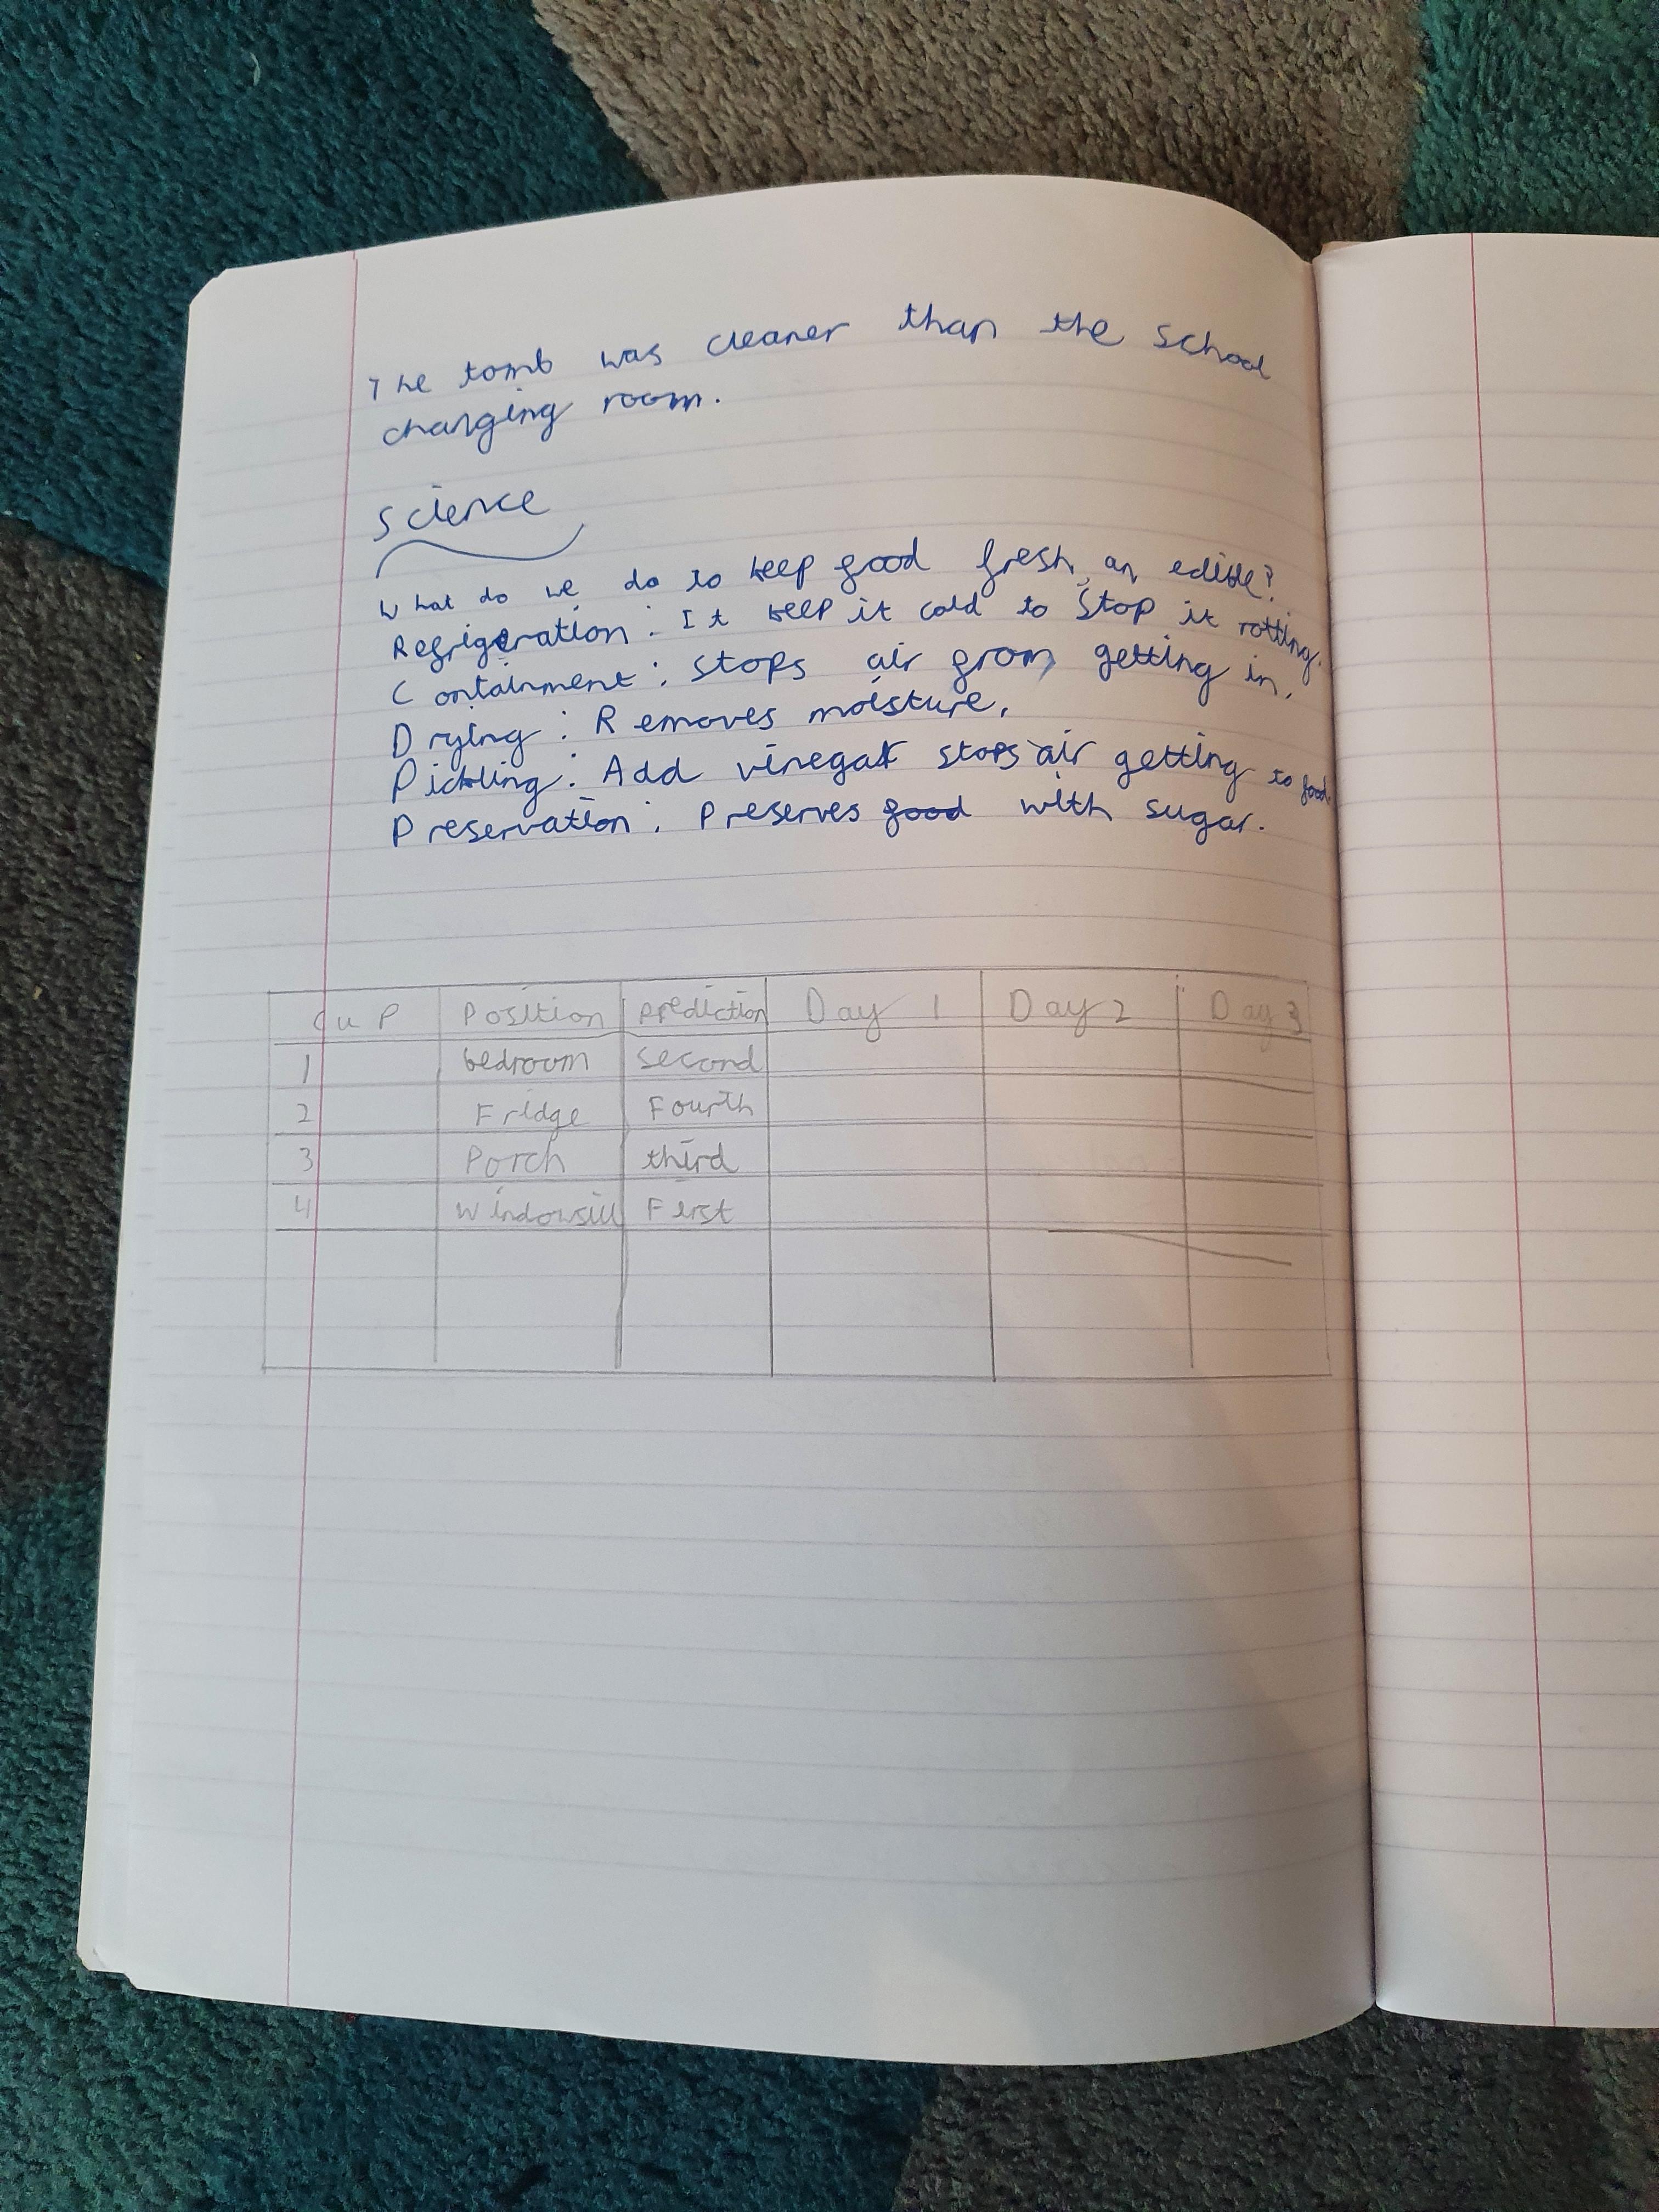 The tomb was cleaner than the school
changing room.
Science
What do we do to keep food fresh an edible?
Refrigeration: It keep it cold to stop it rotting.
Containment: stops air from getting in.
Drying: Removes moisture.
Pickling: Add vinegar stops air getting to food.
Preservation: Preserves food with sugar.
Cup Position prediction Day 1 Day 2 Day 3
1 bedroom second
2 Fridge Fourth
3 Porch third
4 Windowsill First